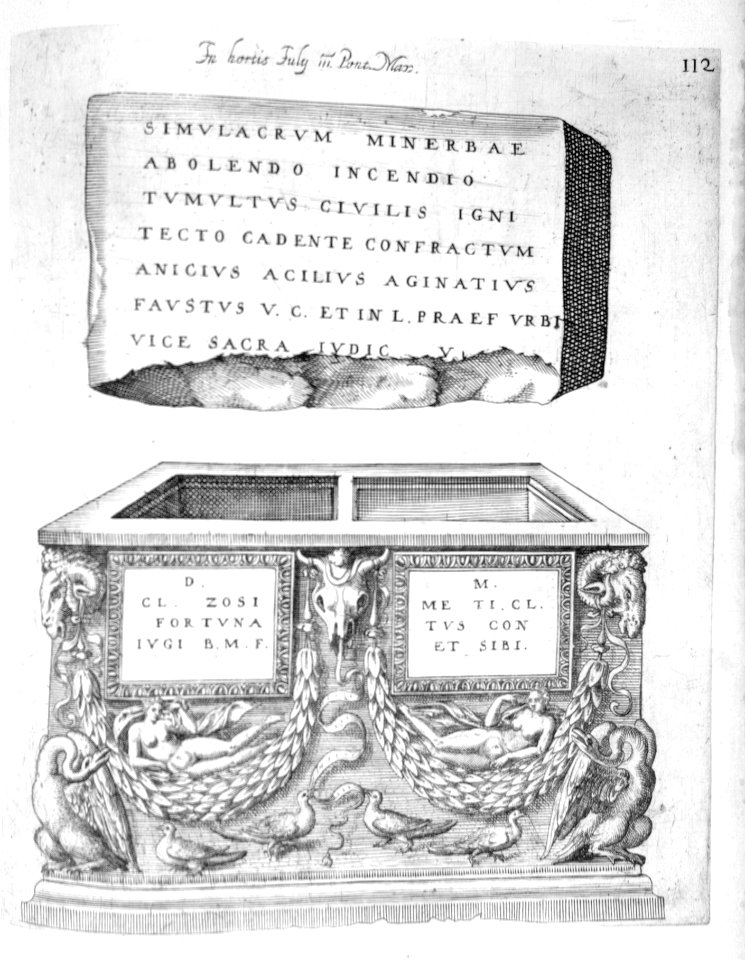 In hortis Iulÿ iii. Pont. Max.
112
SIMVLACRVM MINERBAE
ABOLENDO INCENDIO
TVMVLTVS CIVILIS IGNI
TECTO CADENTE CONFRACTVM
ANICIVS ACILIVS AGINATIVS
FAVSTVS V. C. ET IN L. PRAEF VRBI
VICE SACRA IVDIC V
D.
CL. ZOSI
FORTVNA
IVGI B. M. F.
M.
ME TI. CL.
TVS CON
ET SIBI.